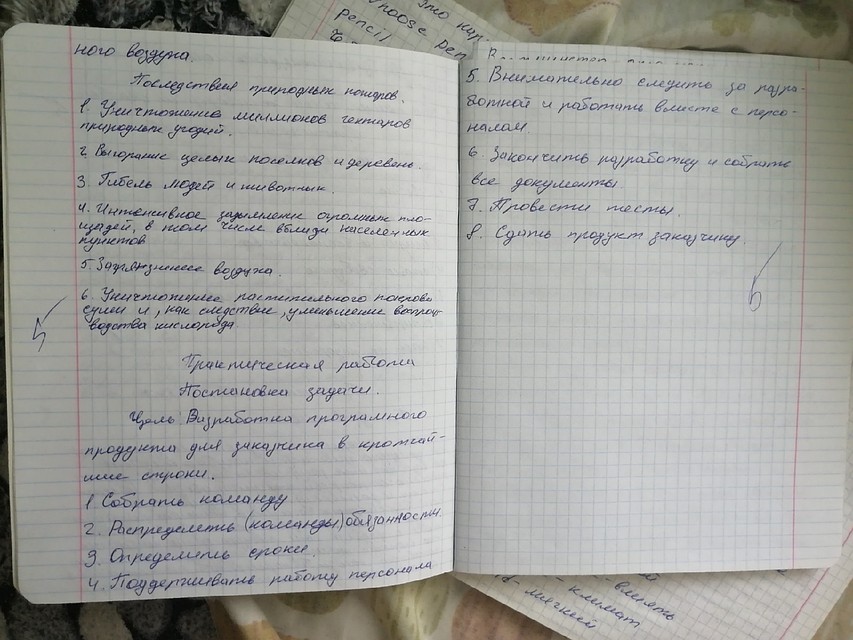 ного воздуха.
Последствия природных пожаров.
1. Уничтожено миллионов гектаров
природных угодий.
2. Выгорание целых поселков и деревень.
3. Гибель людей и животных.
4. Интенсивное задымление огромных пло-
щадей, в том числе вблизи населенных
пунктов
5. Загрязнение воздуха.
6. Уничтожение растительного покрова
суши и, как следствие, уменьшение воспроиз-
водства кислорода.
Практическая работа
Постановка задачи.
Цель Разработка програмного
продукта для заказчика в кротчай-
шие строки.
1 Собрать команду
2. Распределить (команды) обязанности.
3. Определить сроки.
4. Поддерживать работу персонала
5. Внимательно следить за разра-
боткой и работать вместе с персо-
налом.
6. Закончить разработку и собрать
все документы
7. Провести тесты.
8. Сдать продукт заказчику.
это
choose pen
pencil
влиять
- климат
- мягкий